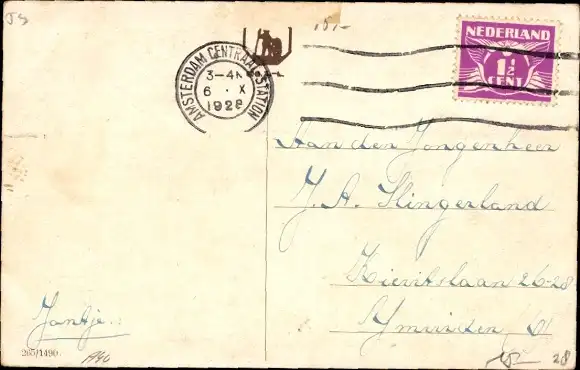 J5
15.-
NEDERLAND
1½
CENT
AMSTERDAM CENTRAAL STATION
3-4
6 . X
1928
Aan den Jongenheer
J. A. Slingerland
Kievitslaan 26-28
IJmuiden O
Jantje.
265/1490
1940
15- 28